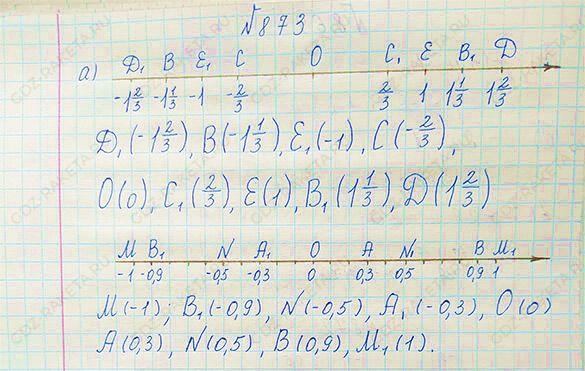 №873
а) D₁ B E₁ C O C₁ E B₁ D
-1 2/3 -1 1/3 -1 -2/3 2/3 1 1 1/3 1 2/3
D₁(-1 2/3), B(-1 1/3), E₁(-1), C(-2/3),
O(0), C₁(2/3), E(1), B₁(1 1/3), D(1 2/3)
M B₁ N A₁ O A N₁ B M₁
-1 -0,9 -0,5 -0,3 0 0,3 0,5 0,9 1
M(-1); B₁(-0,9), N(-0,5), A₁(-0,3), O(0)
A(0,3), N(0,5), B(0,9), M₁(1).
GDZ-RAKETA.RU